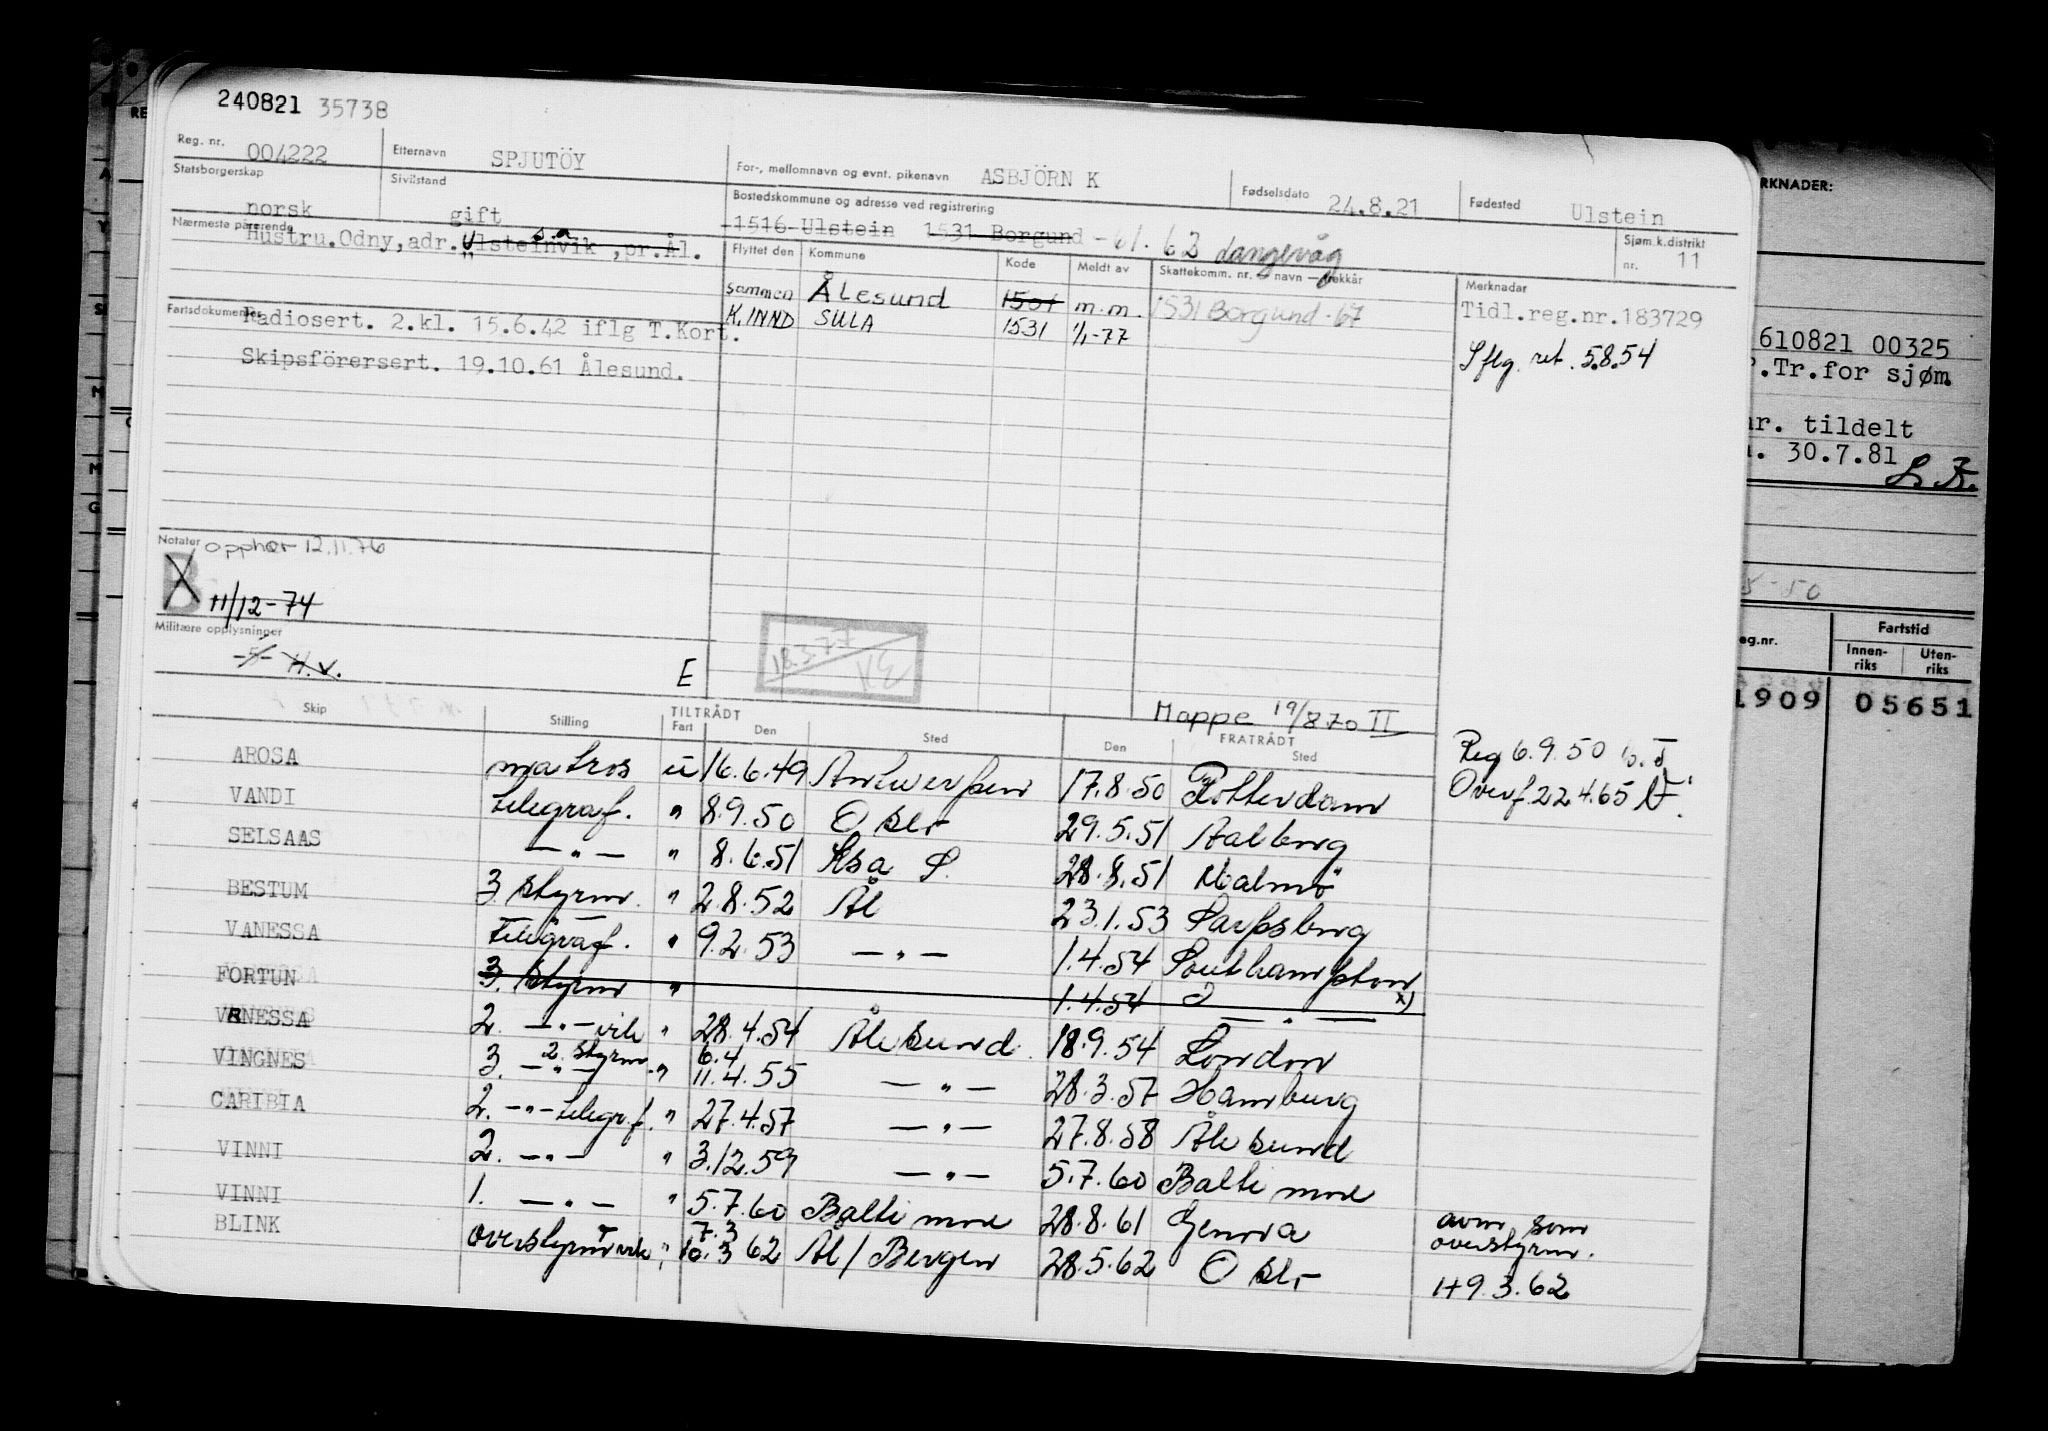 240821 35738
Reg. nr. 004222 Etternavn SPJUTÖY For-, mellomnavn og evnt. pikenavn ASBJÖRN K Fødselsdato 24.8.21 Fødested Ulstein
Statsborgerskap norsk Sivilstand gift Bostedskommune og adresse ved registrering 1516 Ulstein 1531 Borgund - 61. 62 Langevåg Sjøm.k.distrikt nr. 11
Nærmeste pårørende Hustru.Odny,adr. Ulsteinvik ,pr.Ål. s.a
Flyttet den Kommune Kode Meldt av Skattekomm. nr. navn — trekkår Merknader
sammen Ålesund 1501 m.m. 1531 Borgund - 67 Tidl.reg.nr.183729
K.INND SULA 1531 1/1-77
Fartsdokumenter Radiosert. 2.kl. 15.6.42 iflg T.Kort.
Iflg. ret. 5.8.54
Skipsförersert. 19.10.61 Ålesund.
Notater opphør 12.11.76
B 11/12-74
Militære opplysninger
H.V.
E
18.3.77
Mappe 19/870 II
Skip Stilling TILTRÅDT Fart Den Sted FRATRÅDT Den Sted
AROSA matros u 16.6.49 Antwerpen 17.8.50 Rotterdam Reg 6.9.50
VANDI telegraf. " 8.9.50 Oslo 29.5.51 Aalborg Overf. 22.4.65
SELSAAS — " — " 8.6.51 Ksa S. 28.8.51 Malmö
BESTUM 3. styrm. " 2.8.52 Ål 23.1.53 Sarpsborg
VANESSA Telegraf. " 9.2.53 — " — 1.4.54 Southampton
FORTUN 3. styrm " 1.4.54 — " — x)
VANESSA 2. — " — vik " 28.4.54 Ålesund 18.9.54 London
VINGNES 3. — " — 2. styrm. " 6.4 11.4.55 — " — 28.3.57 Hamburg
CARIBIA 2. — " — telegr.f. " 27.4.57 — " — 27.8.58 Ålesund
VINNI 2. — " — " 3.12.59 — " — 5.7.60 Baltimore
VINNI 1. — " — " 5.7.60 Baltimore 28.8.61 Genova
BLINK overstyrm vik " 7.3 10.3 62 Ål / Bergen 28.5.62 Oslo
avm. som
overstyrm.
149.3.62
RKNADER:
610821 00325
P.Tr.for sjøm.
nr. tildelt
30.7.81
eg.nr. Fartstid
Innenriks Utenriks
1909 05651